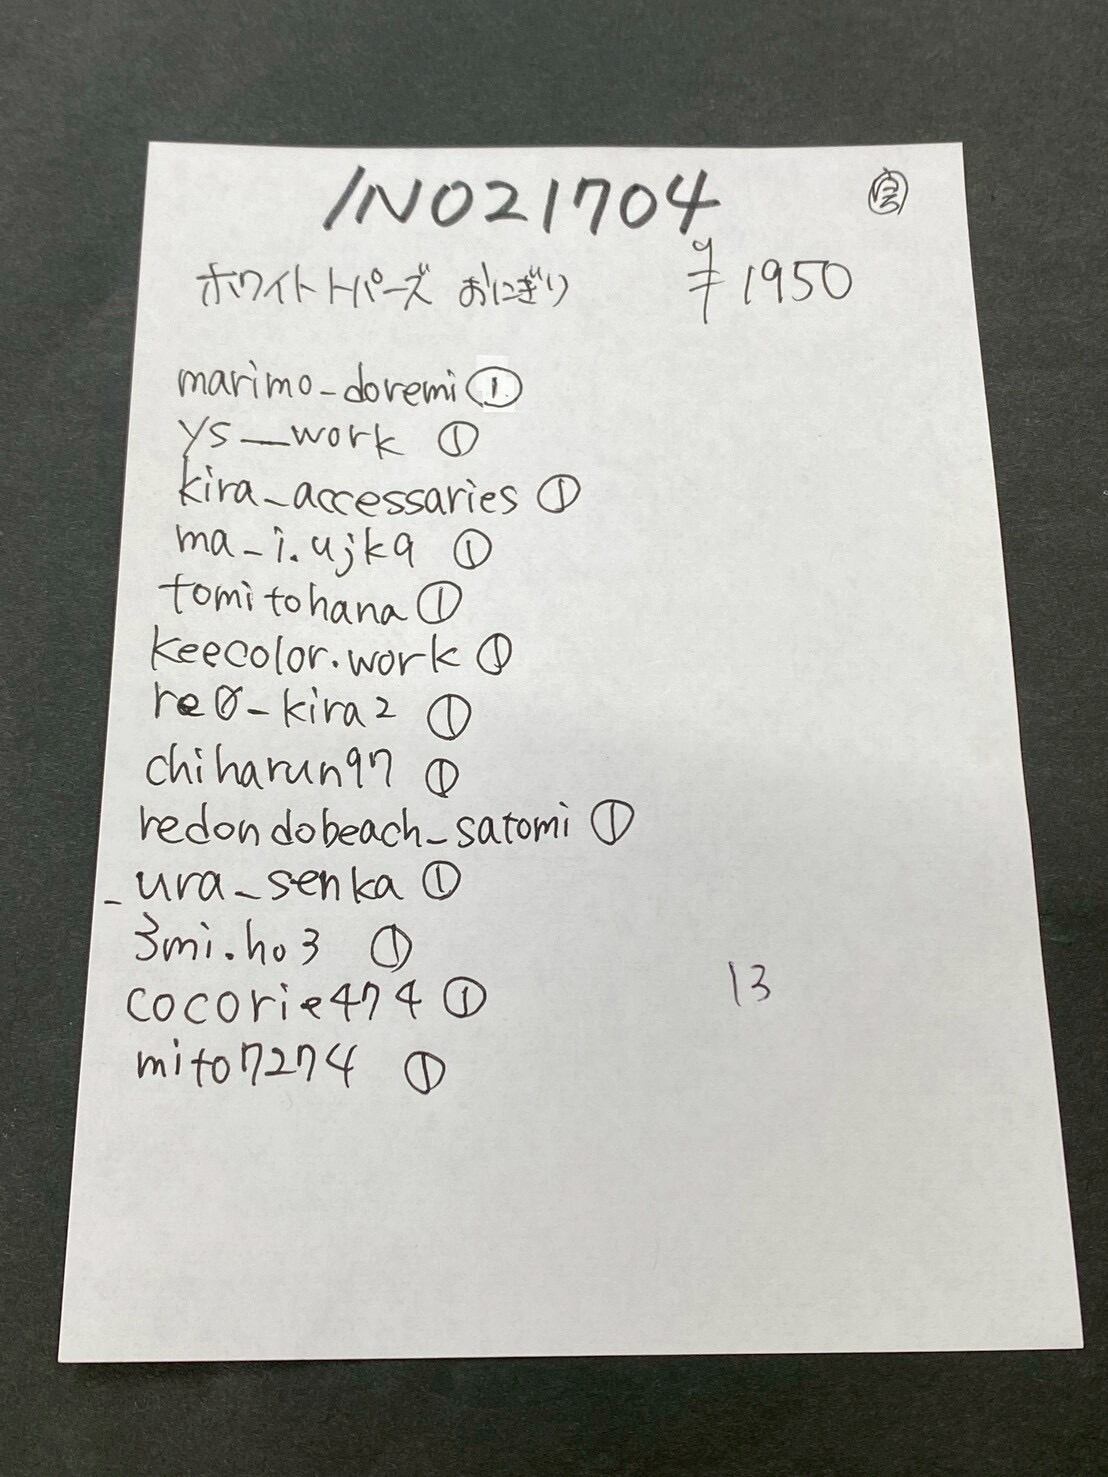 IN021704
宮
ホワイトトパーズ おにぎり ¥1950
marimo_doremi ①
ys__work ①
kira_accessaries ①
ma_i.ujk9 ①
tomitohana ①
keecolor.work ①
re0_kira2 ①
chiharun97 ①
redondobeach_satomi ①
_ura_senka ①
3mi.ho3 ①
cocorie474 ①
13
mito7274 ①